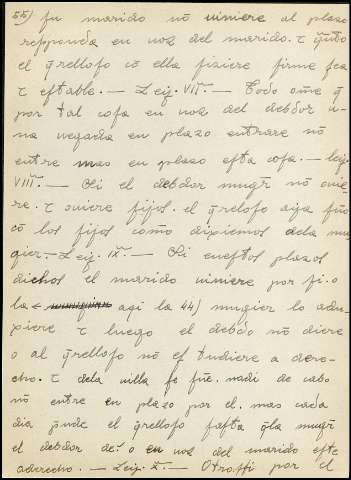 55) fu marido nō uiniere al plazo
refponda en uoz del marido. τ q̄ndo
el q̄rellofo cō ella fiziere firme fea
τ eftable. — Leẏ. VIIª. — Todo om̄e q̄
por tal cofa en uoz del debdor u-
na uegada en plazo entrare nō
entre mas en plazo efta cofa. — leẏ.
VIIIª. — Si el debdor mugr̄ nō ouie
re. τ ouiere fijos. el q̄rellofo aẏa fuō
cō los fijos como dixiemos dela mu
gier. — Leẏ. IXª. — Si eneftos plazos
dichos el marido uiniere por fi. o
la ← aqi la 44) mugier lo adu-
xiere τ luego el debdo nō diere
o al q̄rellofo nō eftudiere a dere-
cho. τ dela uilla fe fue. nadi de cabo
nō entre en plazo por el. mas cada
dia p̄nde el q̄rellofo fafta q̄la mugr̄
el debdor dé. o en uoz del marido efte
aderecho. — Leẏ. X. — Otroffi por el